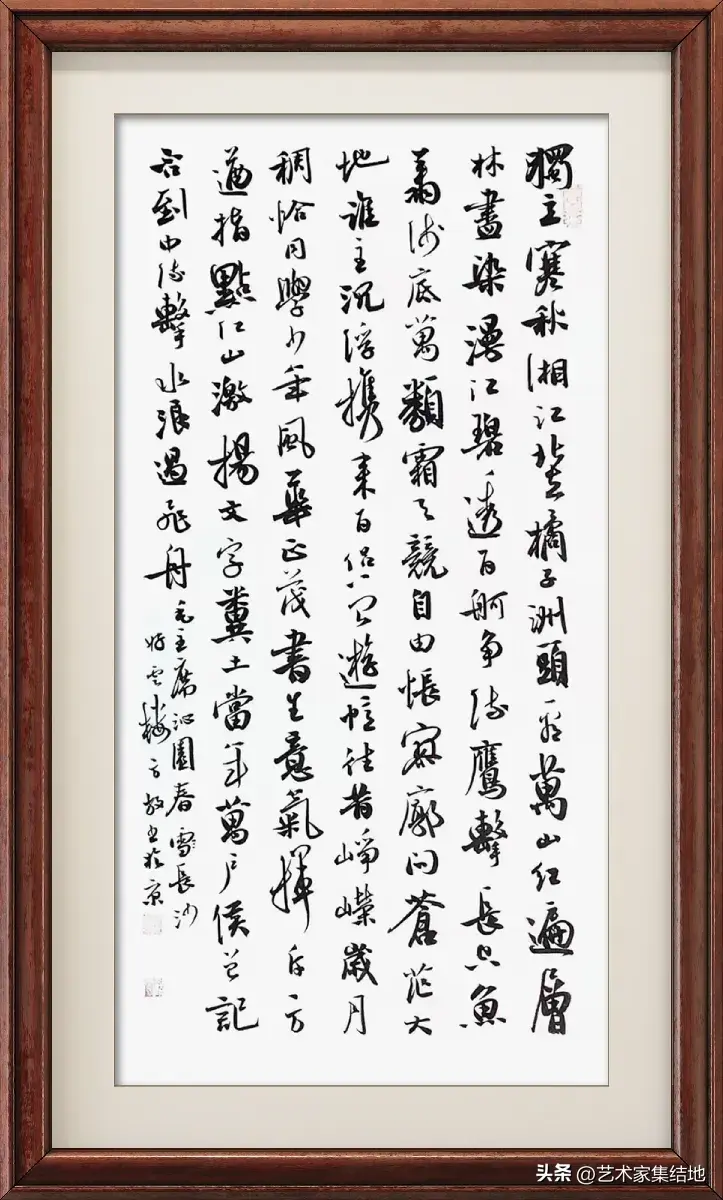 獨立寒秋湘江北去橘子洲頭看萬山紅遍層
林盡染漫江碧透百舸争流鷹擊長空魚
翔浅底萬類霜天競自由悵寥廓問蒼茫大
地誰主沉浮携來百侣曾遊憶往昔崢嶸歲月
稠恰同學少年風華正茂書生意氣揮斥方
遒指點江山激揚文字糞土當年萬户侯曾記
否到中流擊水浪遏飛舟
毛主席沁園春雪長沙
云樓方书於京
头条 @艺术家集结地